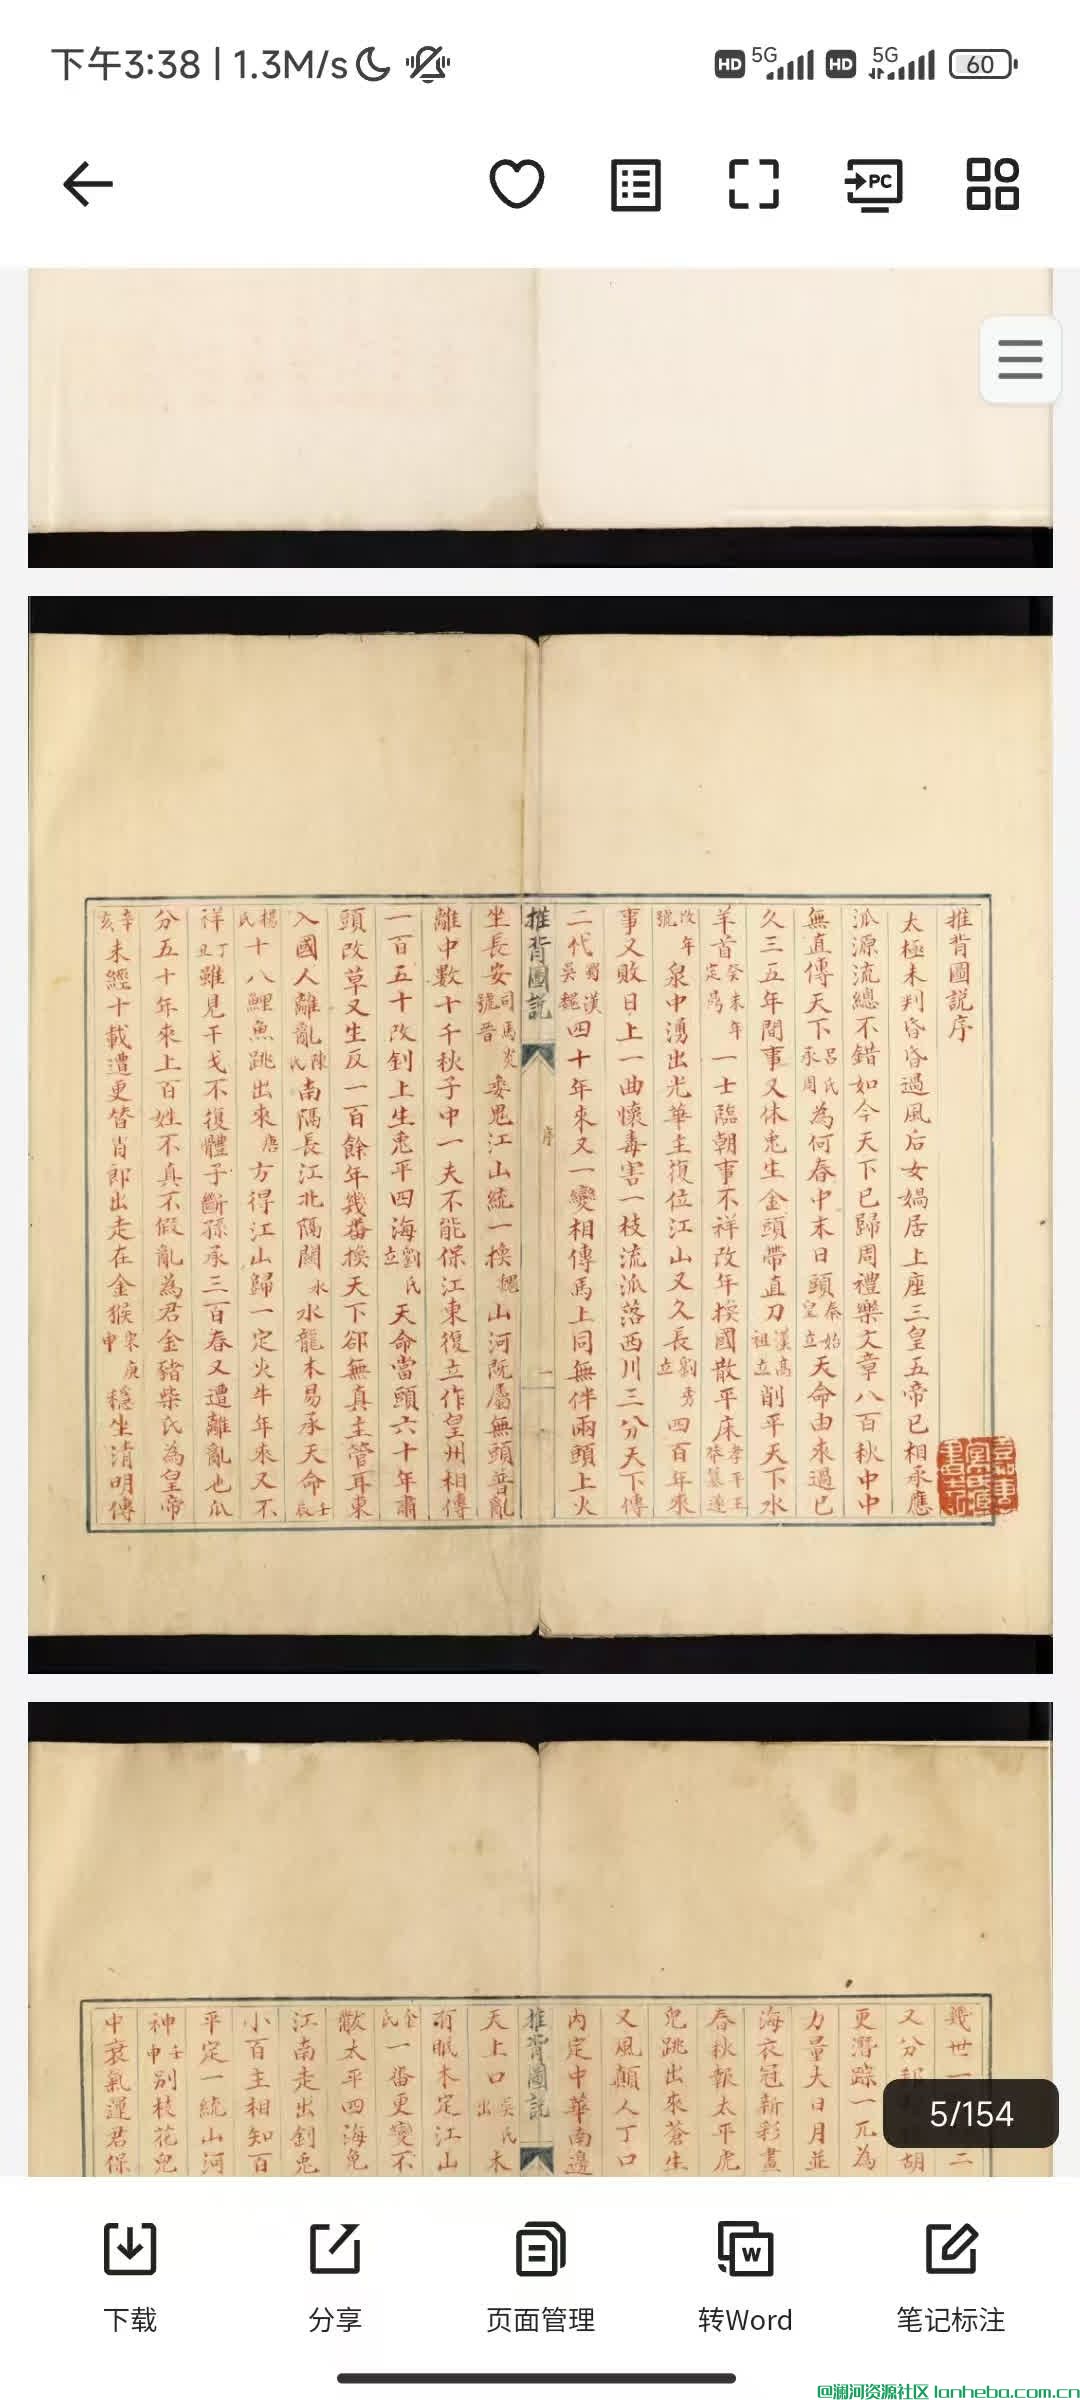 下午3:38 | 1.3M/s
HD 5G HD 5G 60
PC
推背圖説序
太極未判昏昏過風后女媧居上座三皇五帝已相承應
派源流總不錯如今天下已歸周禮樂文章八百秋中中
無直傳天下呂氏承周為何春中末日頭秦始皇立天命由來過已
久三五年間事又休兎生金頭帶直刀漢高祖立削平天下水
羊首癸未年定鳬一士臨朝事不祥改年換國散平床孝平王莽篡遂
改年號泉中湧出光華主復位江山又久長劉秀立四百年來
事又敗日上一曲懷毒害一枝流派落西川三分天下傳
二代蜀漢吳魏四十年來又一變相傳馬上同無伴兩頭上火
推背圖説
序
一
坐長安司馬炎號晉委鬼江山統一換魏山河阮屬無頭晉亂
離中數十千秋子中一夫不能保江東復立作皇州相傳
一百五十改釗上生兎平四海劉氏立天命當頭六十年肅
頭改草又生反一百餘年幾番換天下卻無真主管耳東
入國人離亂陳氏南隔長江北隔關水水龍木易承天命壬辰
楊氏十八鯉魚跳出來唐方得江山歸一定火牛年來又不
祥丁丑雖見干戈不復體子斷孫承三百春又遭離亂也瓜
分五十年來上百姓不真不假亂為君金豬柴氏為皇帝
辛亥未經十載遭更替肖郎出走在金猴宋庚申穩坐清明傳
幾世一
二
又分
胡
更潛踪一兀為
力量大日月並
海衣冠新彩畫
春秋報太平虎
兒跳出來蒼生
又風顛人丁口
內定中華南邊
推背圖説
天上口吳氏出木
有眠木定江山
金氏一番更變不
歡太平四海兎
江南走出釗兎
小百主相知百
平定一統山河
神壬申別枝花兒
中衰氣運君保
5/154
下载
分享
页面管理
转Word
笔记标注
@澜河资源社区 lanheba.com.cn